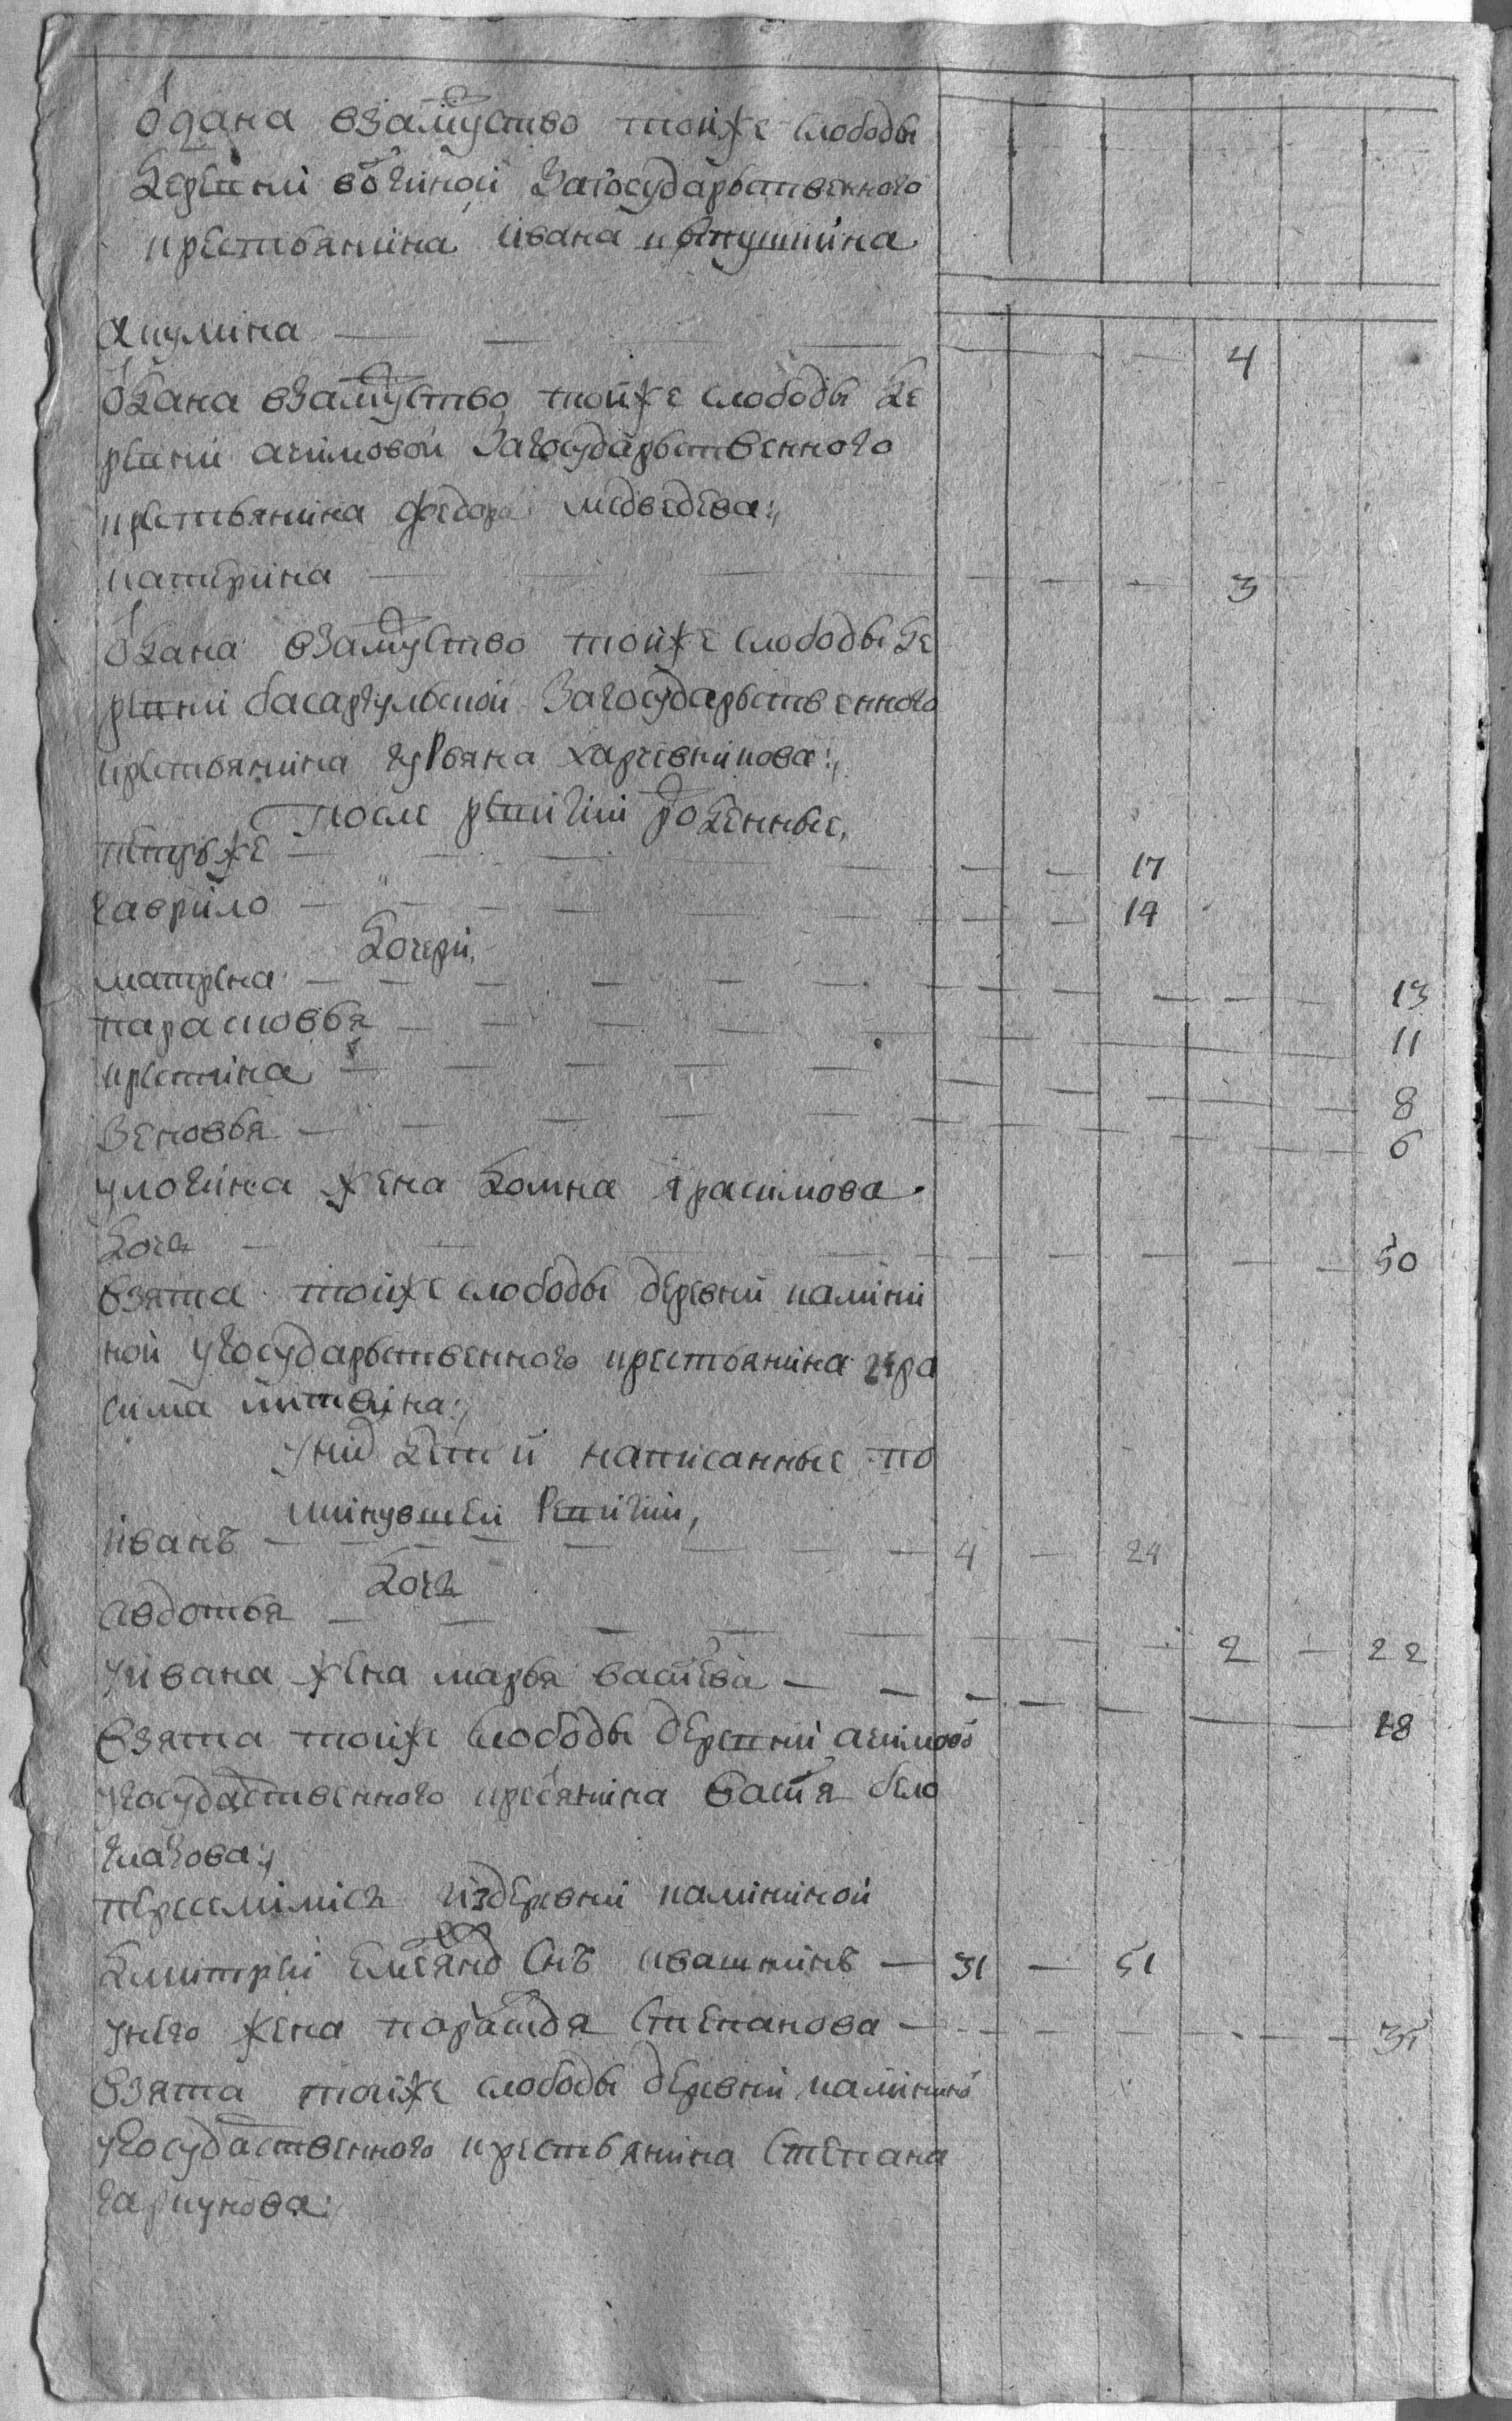 одана взамуство тойже слободы
деревни вогиной загосударьственного
крестьянина ивана
акулина — 4
одана взамуство тойже слободы де
ревни ачимовой загосударьственного
крестьянина федора медведева:,
катерина — 3
одана взамуство тойже слободы де
ревни басаргульской загосударьственного
крестьянина гурьяна харчевникова:,
После ревизии рожденные,
петръже — 17
гаврило — 14
дочери,
матрена — 13
парасковья — 11
крестина — 8
зеновья — 6
улогина жена домна ярасимова
дочь — 50
взята тойже слободы деревни камini
ной угосударьственного крестьянина гера
сима
уних дети написанные по
минувшей ревизии,
иванъ — 4 — 24
дочь
авдотья — 2 — 22
уивана жена марья васиева — 18
взята тойже слободы деревни ачимовой
угосудаственного кресянина васия бело
глазова:,
переселились издеревни каминкой
дмитрей емеянов снъ квашнинъ — 31 — 51
унего жена парасковя степанова — 35
взята тойже слободы деревни
угосудаственного крестьянина степана
гаркунова:,